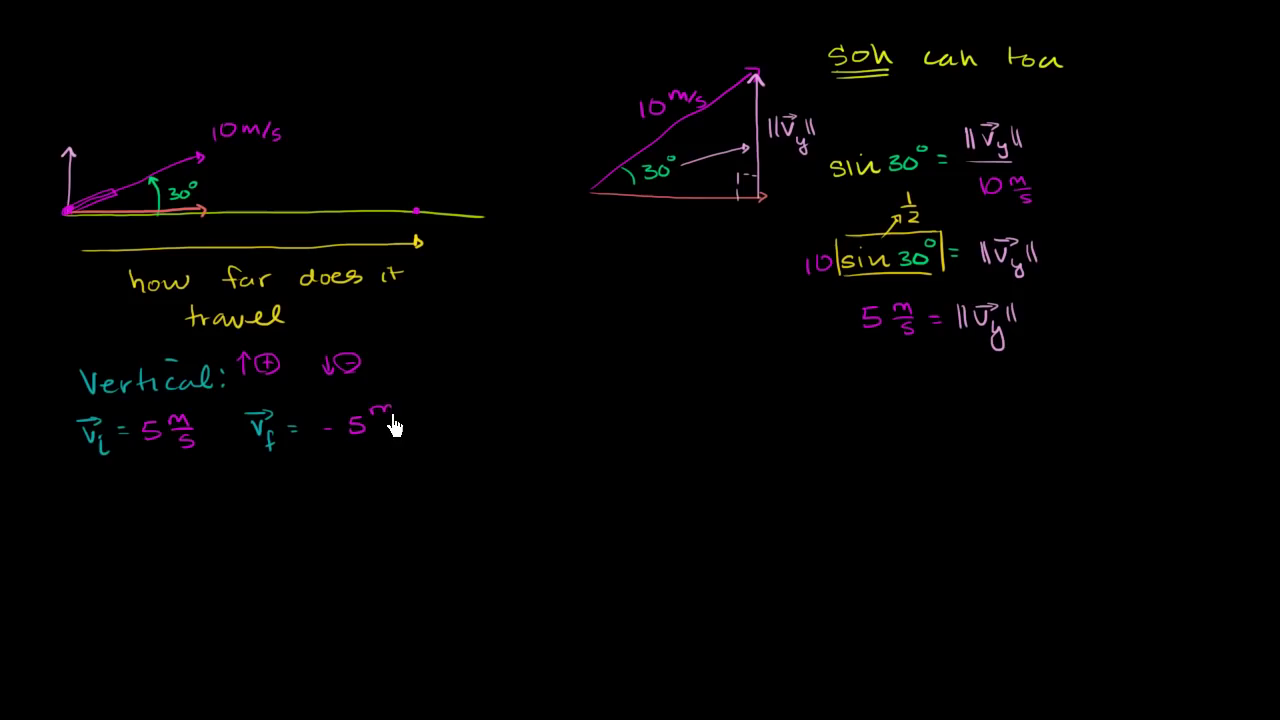 10 m/s
30°
how far does it
travel
Vertical: ↑⊕ ↓⊖
v⃗ᵢ = 5 m/s v⃗_f = - 5 m
10 m/s
30°
||v⃗_y||
soh cah toa
sin 30° = ||v⃗_y|| / 10 m/s
1/2
10 sin 30° = ||v⃗_y||
5 m/s = ||v⃗_y||